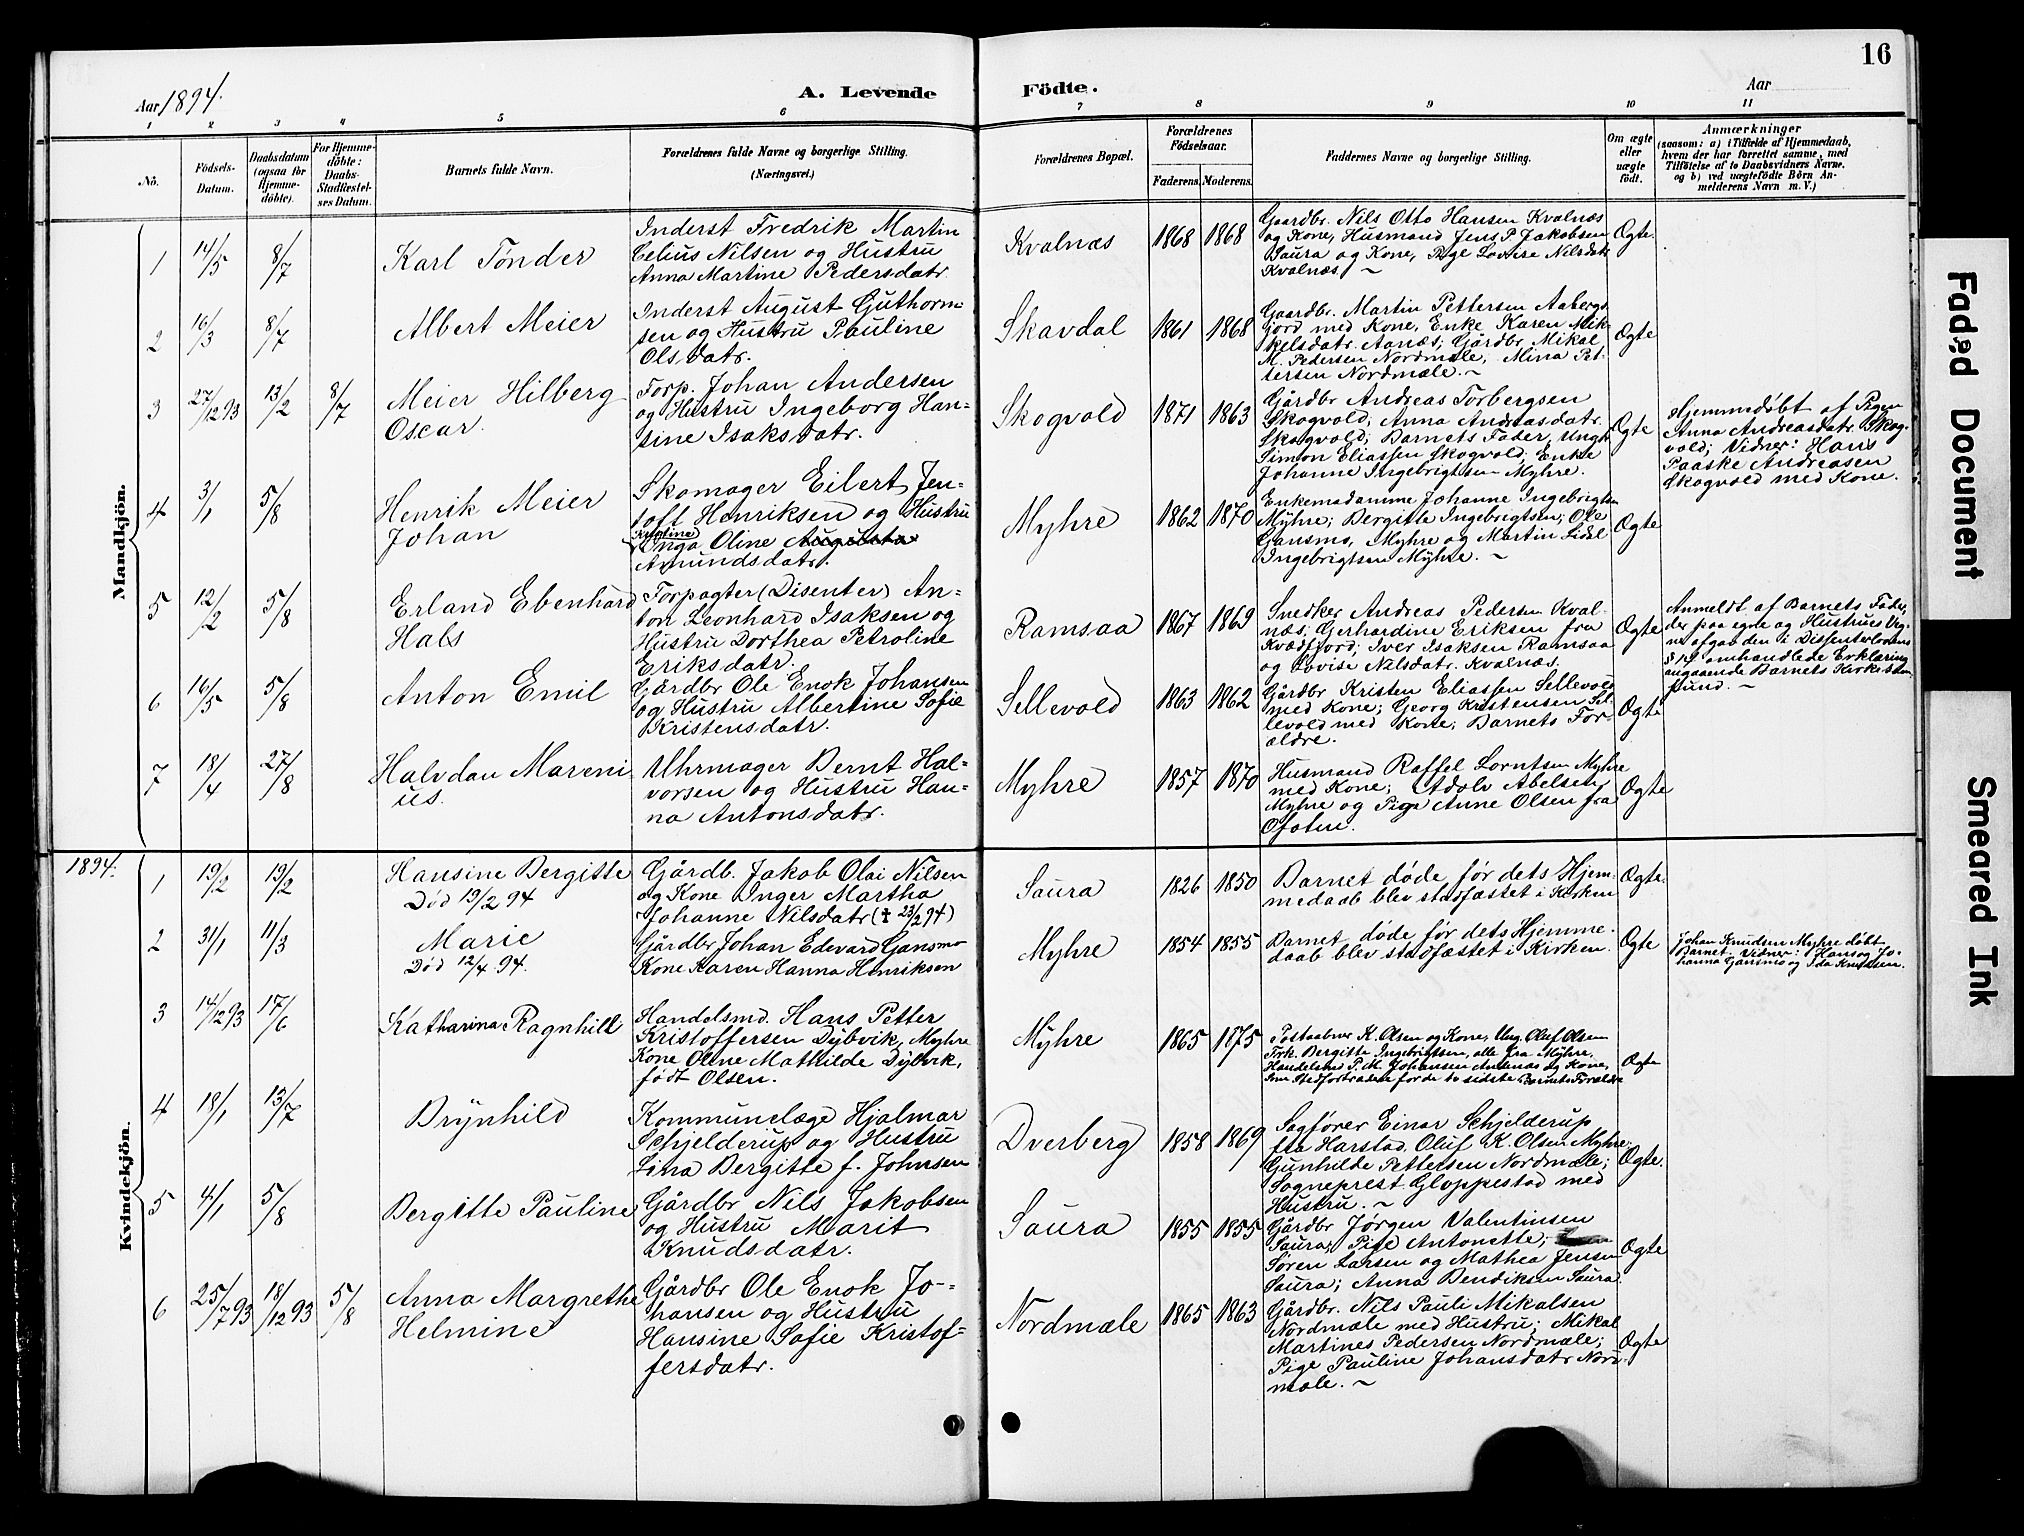 16
Aar 1894.
A. Levende
Födte.
Aar
1 2 3 4 5 6 7 8 9 10 11
No.
Födsels-
Datum.
Daabsdatum
(ogsaa for
Hjemme-
döbte).
For Hjemme-
döbte:
Daabs-
Stadfæstel-
ses Datum.
Barnets fulde Navn.
Forældrenes fulde Navne og borgerlige Stilling.
(Næringsvei.)
Forældrenes Bopæl.
Forældrenes
Födselsaar.
Faderens.
Moderens.
Faddernes Navne og borgerlige Stilling.
Om ægte
eller
uægte
født.
Anmærkninger
(saasom: a) i Tilfælde af Hjemmedaab,
hvem der har forrettet samme, med
Tilföielse af to Daabsvidners Navne,
og b) ved uægtefödte Börn An-
melderens Navn m. V.)
Mandkjön.
1
14/5
8/7
Karl Tönder
Inderst Fredrik Martin
Celius Nilsen og Hustru
Anna Martine Pedersdatr.
Kvalnæs
1868
1868
Gaardbr. Nils Otto Hansen Kvalnæs
og Kone, Husmand Jens P. Jakobsen
Saura og Kone, Pige Lovise Nilsdatr
Kvalnæs. ~
Ægte.
2
16/3
8/7
Albert Meier
Inderst August Guthorm-
sen og Hustru Pauline
Olsdatr.
Skavdal
1861
1868
Gaardbr. Martin Pettersen Aabergs
fjord med Kone, Enke Karen Mik-
kelsdatr. Aanæs; Gårdbr. Mikal
M. Pedersen Nordmæle; Mina Pet-
tersen Nordmæle. ~
Ægte
3
27/12 93
13/2
8/7
Meier Hilberg
Oscar.
Forp. Johan Andersen
og Hustru Ingeborg Han-
sine Isaksdatr.
Skogvold
1871
1863
Gårdbr Andreas Torbergsen
Skogvold; Anna Andreasdatr.
Skogvold; Barnets Fader, Ungk
Simon Eliassen Skogvold; Enke
Johanne Ingebrigtsen Myhre.
Ægte
Hjemmedøbt af Pigen
Anna Andreasdatr. Skog-
vold; Vidner: Hans
Paaske Andreasen
Skogvold med Kone.
4
3/1
5/8
Henrik Meier
Johan
Skomager Eilert Jen-
toft Henriksen og Hustru
Inga Oline Augusta
Amundsdatr.
Myhre
1862
1870
Enkemadamme Johanne Ingebrigtsen
Myhre; Bergitte Ingebrigtsen; Ole
Gansmo, Myhre og Martin Sidel
Ingebrigtsen Myhre. ~
Ægte
5
12/2
5/8
Erland Ebenhard
Hals
Forpagter (Disenter) An-
ton Leonhard Isaksen og
Hustru Dorthea Petroline
Eriksdatr.
Ramsaa
1867
1869
Snedker Andreas Pedersen Kval-
næs; Gerhardine Eriksen fra
Kvædfjord; Iver Isaksen Ramsaa
og Lovise Nilsdatr. Kvalnæs.
Ægte
Anmeldt af Barnets Fader,
der paa egne og Hustrues Veg-
ne afgav den i Dissenterlovens
§ 14 omhandlede Erklæring
angaaende Barnets Kirkesam-
fund. ~
6
16/5
5/8
Anton Emil
Gårdbr Ole Enok Johansen
og Hustru Albertine Sofie
Kristensdatr.
Sellevold
1863
1862
Gårdbr Kristen Eliassen Sellevold
med Kone; Georg Kristensen Sel-
levold med Kone; Barnets For-
ældre.
Ægte
7
18/4
27/8
Halvdan Mareni
us.
Uhrmager Bernt Hal-
vorsen og Hustru Han-
na Antonsdatr.
Myhre
1857
1870
Husmand Raffel Lorntsen Myhre
med Kone; Adolv Abelsen
Myhre og Pige Anne Olsen fra
Ofoten.
Ægte
1894.
Kvindekjön.
1
19/2
19/2
Hansine Bergitte
Død 19/2 94
Gårdb. Jakob Olai Nilsen
og Kone Inger Martha
Johanne Nilsdatr (+ 23/2 94)
Saura
1826
1850
Barnet døde før dets Hjem-
medaab blev stadfæstet i Kirken
Ægte.
2
31/1
11/3
Marie
Død 12/4 94.
Gårdbr Johan Edevard Gansmo
Kone Karen Hanna Henriksen
Myhre
1854
1855
Barnet døde før dets Hjemme-
daab blev stadfæstet i Kirken.
Ægte
Johan Knudsen Myhre døbt
Barnet. Vidner: Hans og Jo-
hanna Gansmo og Ida Knudsen.
3
14/12 93
17/6
Katharina Ragnhild
Handelsmd. Hans Petter
Kristoffersen Dybvik, Myhre
Kone Oline Mathilde Dybvik,
født Olsen.
Myhre
1865
1875
Postaabner K. Olsen og Kone, Ung. Oluf Olsen
Frk. Bergitte Ingebrigtsen, alle fra Myhre,
Handelsmd P. M. Johansen Andenæs og Kone,
som Stedfortrædere for de to sidste Barnets Forældre
Ægte
4
18/1
13/7
Brynhild
Kommunelæge Hjalmar
Schjelderup og Hustru
Lina Bergitte f. Johnsen
Dverberg
1858
1869
Sagfører Einar Schjelderup
fra Harstad, Oluf K. Olsen Myhre;
Gunhilde Pettersen Nordmæle;
Sogneprest Gloppestad med
Hustru. ~
Ægte.
5
4/1
5/8
Bergitte Pauline
Gårdbr Nils Jakobsen
og Hustru Marit
Knudsdatr.
Saura
1855
1855
Gårdbr Jørgen Valentinsen
Saura; Pige Antonette;
Søren Larsen og Mathea Jensen
Saura; Anna Bendiksen Saura
Ægte
6
25/7 93
18/12 93
5/8
Anna Margrethe
Helmine
Gårdbr Ole Enok Jo-
hansen og Hustru
Hansine Sofie Kristof-
fersdatr.
Nordmæle
1865
1863
Gårdbr. Nils Pauli Mikalsen
Nordmæle med Hustru; Mikal
Martines Pedersen Nordmæle;
Pige Pauline Johansdatr Nord-
mæle. ~
Ægte
Faded Document
Smeared Ink